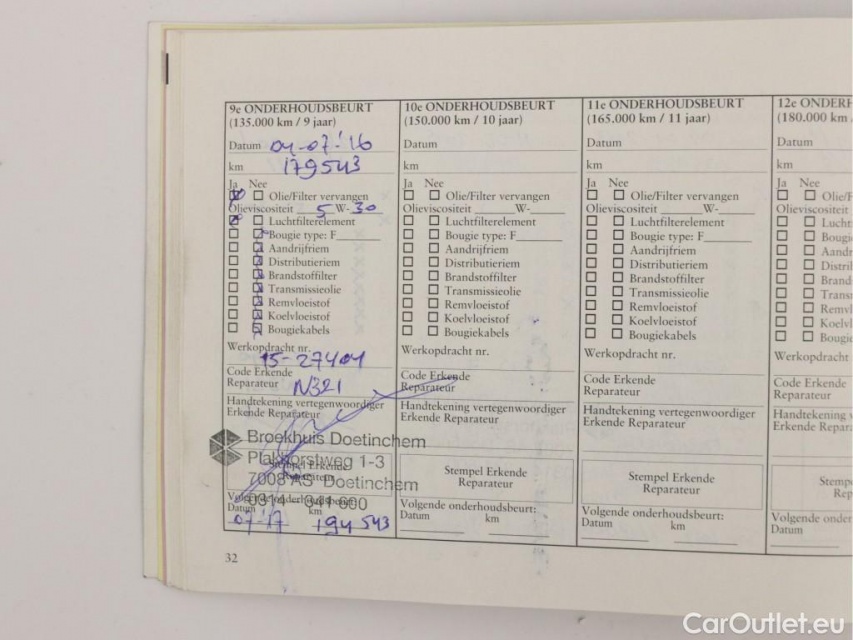 9e ONDERHOUDSBEURT
(135.000 km / 9 jaar)
Datum 04-07-'16
km 179543
Ja Nee
Olie/Filter vervangen
Olieviscositeit 5 W- 30
Luchtfilterelement
Bougie type: F
Aandrijfriem
Distributieriem
Brandstoffilter
Transmissieolie
Remvloeistof
Koelvloeistof
Bougiekabels
Werkopdracht nr.
15-27401
Code Erkende
Reparateur N321
Handtekening vertegenwoordiger
Erkende Reparateur
Broekhuis Doetinchem
Plakhorstweg 1-3
Stempel Erkende
Reparateur
7008 AS Doetinchem
Volgende onderhoudsbeurt:
0314 - 341 000
Datum km
07-17 194543
32
10e ONDERHOUDSBEURT
(150.000 km / 10 jaar)
Datum
km
Ja Nee
Olie/Filter vervangen
Olieviscositeit W-
Luchtfilterelement
Bougie type: F
Aandrijfriem
Distributieriem
Brandstoffilter
Transmissieolie
Remvloeistof
Koelvloeistof
Bougiekabels
Werkopdracht nr.
Code Erkende
Reparateur
Handtekening vertegenwoordiger
Erkende Reparateur
Stempel Erkende
Reparateur
Volgende onderhoudsbeurt:
Datum km
11e ONDERHOUDSBEURT
(165.000 km / 11 jaar)
Datum
km
Ja Nee
Olie/Filter vervangen
Olieviscositeit W-
Luchtfilterelement
Bougie type: F
Aandrijfriem
Distributieriem
Brandstoffilter
Transmissieolie
Remvloeistof
Koelvloeistof
Bougiekabels
Werkopdracht nr.
Code Erkende
Reparateur
Handtekening vertegenwoordiger
Erkende Reparateur
Stempel Erkende
Reparateur
Volgende onderhoudsbeurt:
Datum km
12e ONDERH
(180.000 km
Datum
km
Ja Nee
Olie/F
Olieviscositeit
Lucht
Bougi
Aandr
Distri
Brand
Trans
Remv
Koelv
Bougi
Werkopdracht
Code Erkende
Reparateur
Handtekening
Erkende Repara
Stemp
Re
Volgende onder
Datum
CarOutlet.eu